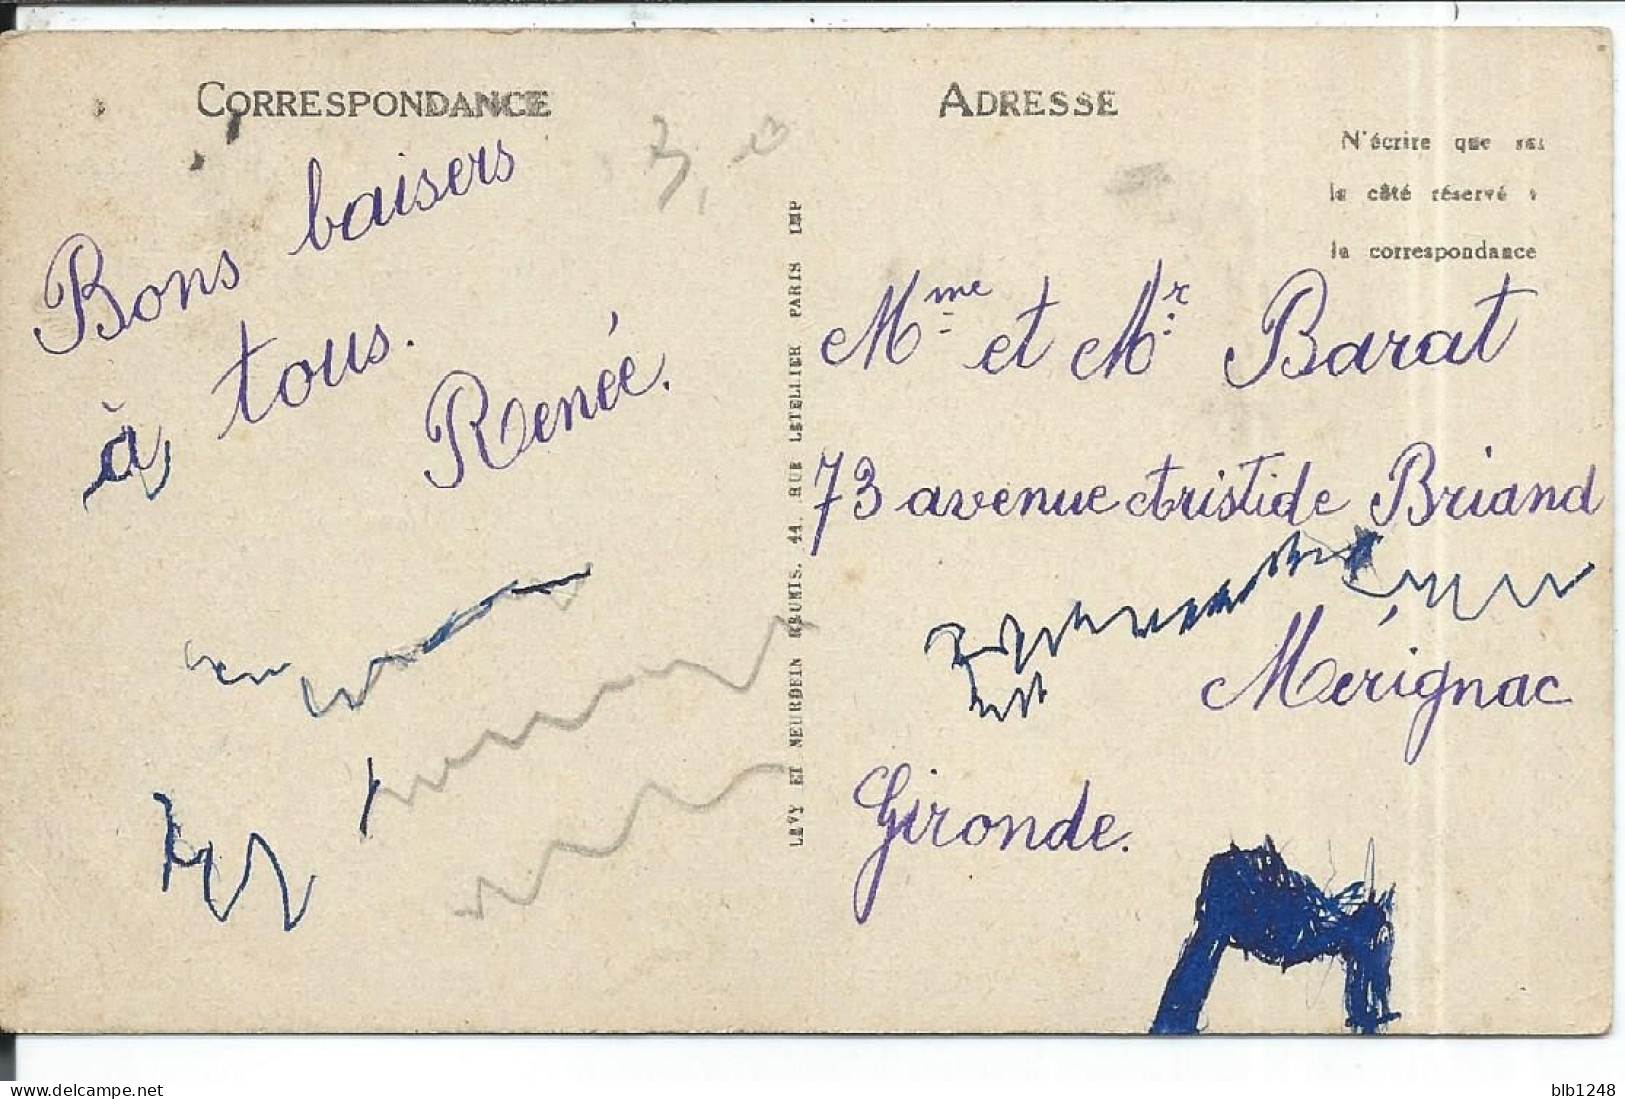 CORRESPONDANCE
3,
Bons baisers
à tous.
Renée.
LEVY ET NEURDEIN REUNIS. 44. RUE LETELLIER PARIS IMP
ADRESSE
N'écrire que sur
le côté réservé à
la correspondance
Mme et Mr Barat
73 avenue Aristide Briand
Mérignac
Gironde.
https://www.delcampe.net
blb1248